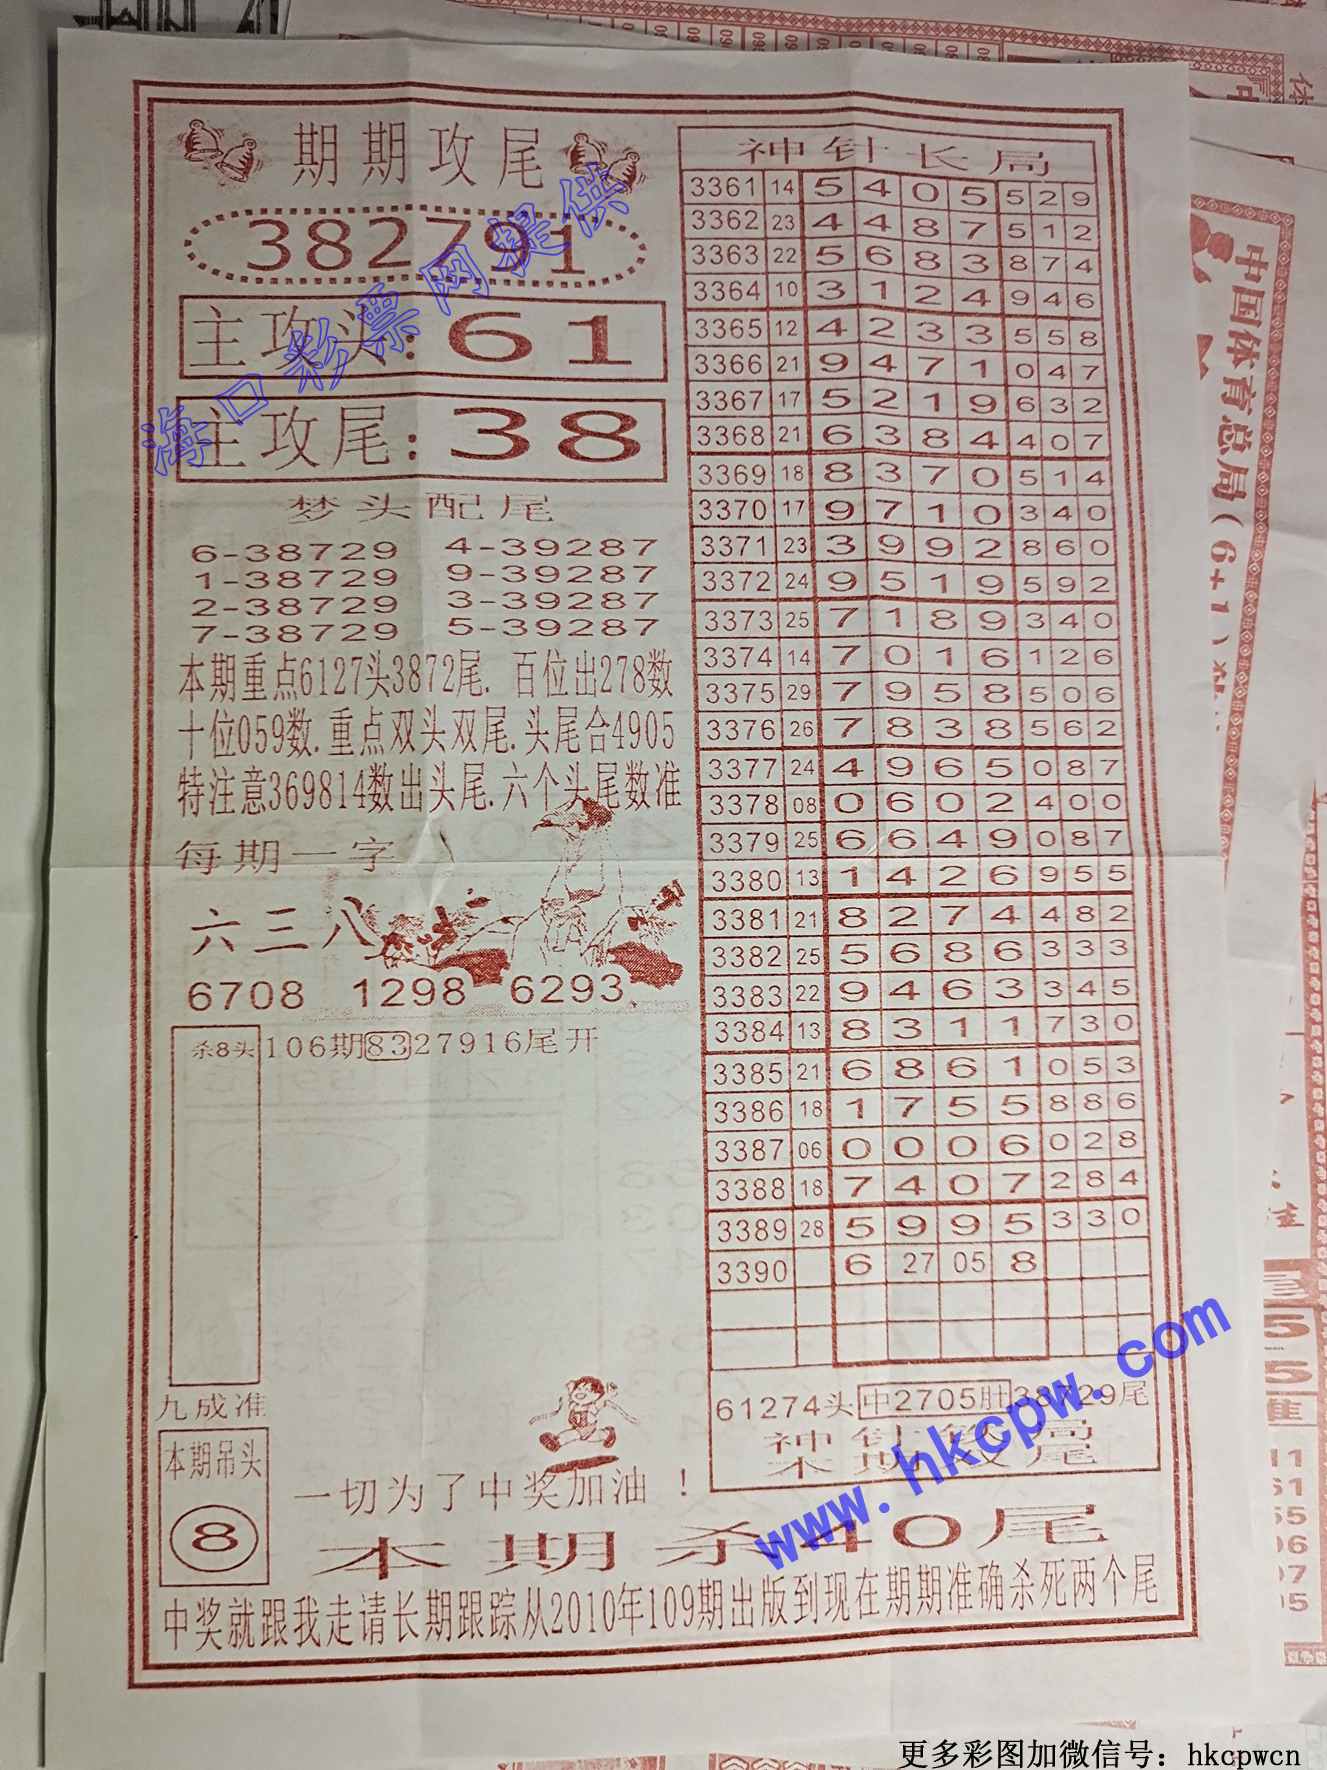 期期攻尾
382791
主攻头:61
主攻尾:38
梦头配尾
6-38729 4-39287
1-38729 9-39287
2-38729 3-39287
7-38729 5-39287
本期重点6127头3872尾.百位出278数
十位059数.重点双头双尾.头尾合4905
特注意369814数出头尾.六个头尾数准
每期一字
六三八
6708 1298 6293
杀8头
106期8327916尾开
九成准
本期吊头
8
一切为了中奖加油！
神针长局
3361 14 5 4 0 5 5 2 9
3362 23 4 4 8 7 5 1 2
3363 22 5 6 8 3 8 7 4
3364 10 3 1 2 4 9 4 6
3365 12 4 2 3 3 5 5 8
3366 21 9 4 7 1 0 4 7
3367 17 5 2 1 9 6 3 2
3368 21 6 3 8 4 4 0 7
3369 18 8 3 7 0 5 1 4
3370 17 9 7 1 0 3 4 0
3371 23 3 9 9 2 8 6 0
3372 24 9 5 1 9 5 9 2
3373 25 7 1 8 9 3 4 0
3374 14 7 0 1 6 1 2 6
3375 29 7 9 5 8 5 0 6
3376 26 7 8 3 8 5 6 2
3377 24 4 9 6 5 0 8 7
3378 08 0 6 0 2 4 0 0
3379 25 6 6 4 9 0 8 7
3380 13 1 4 2 6 9 5 5
3381 21 8 2 7 4 4 8 2
3382 25 5 6 8 6 3 3 3
3383 22 9 4 6 3 3 4 5
3384 13 8 3 1 1 7 3 0
3385 21 6 8 6 1 0 5 3
3386 18 1 7 5 5 8 8 6
3387 06 0 0 0 6 0 2 8
3388 18 7 4 0 7 2 8 4
3389 28 5 9 9 5 3 3 0
3390 6 27 05 8
61274头中2705肚38729尾
本期杀40尾
中奖就跟我走请长期跟踪从2010年109期出版到现在期期准确杀死两个尾
海口彩票网提供
www.hkcpw.com
中国体育总局(6+1)
更多彩图加微信号：hkcpwcn